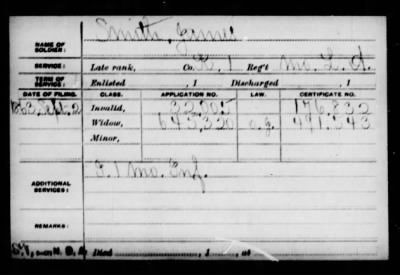 NAME OF SOLDIER: Smith, James
SERVICE: Late rank, Co. K, 1 Reg't Mo. L. A.
TERM OF SERVICE: Enlisted , 1 Discharged , 1
DATE OF FILING. CLASS. APPLICATION NO. LAW. CERTIFICATE NO.
Invalid, 32,005 176,832
Widow, 643,320 441,343
Minor,
ADDITIONAL SERVICES: Mo. Inf.
REMARKS:
Died , 1 , at